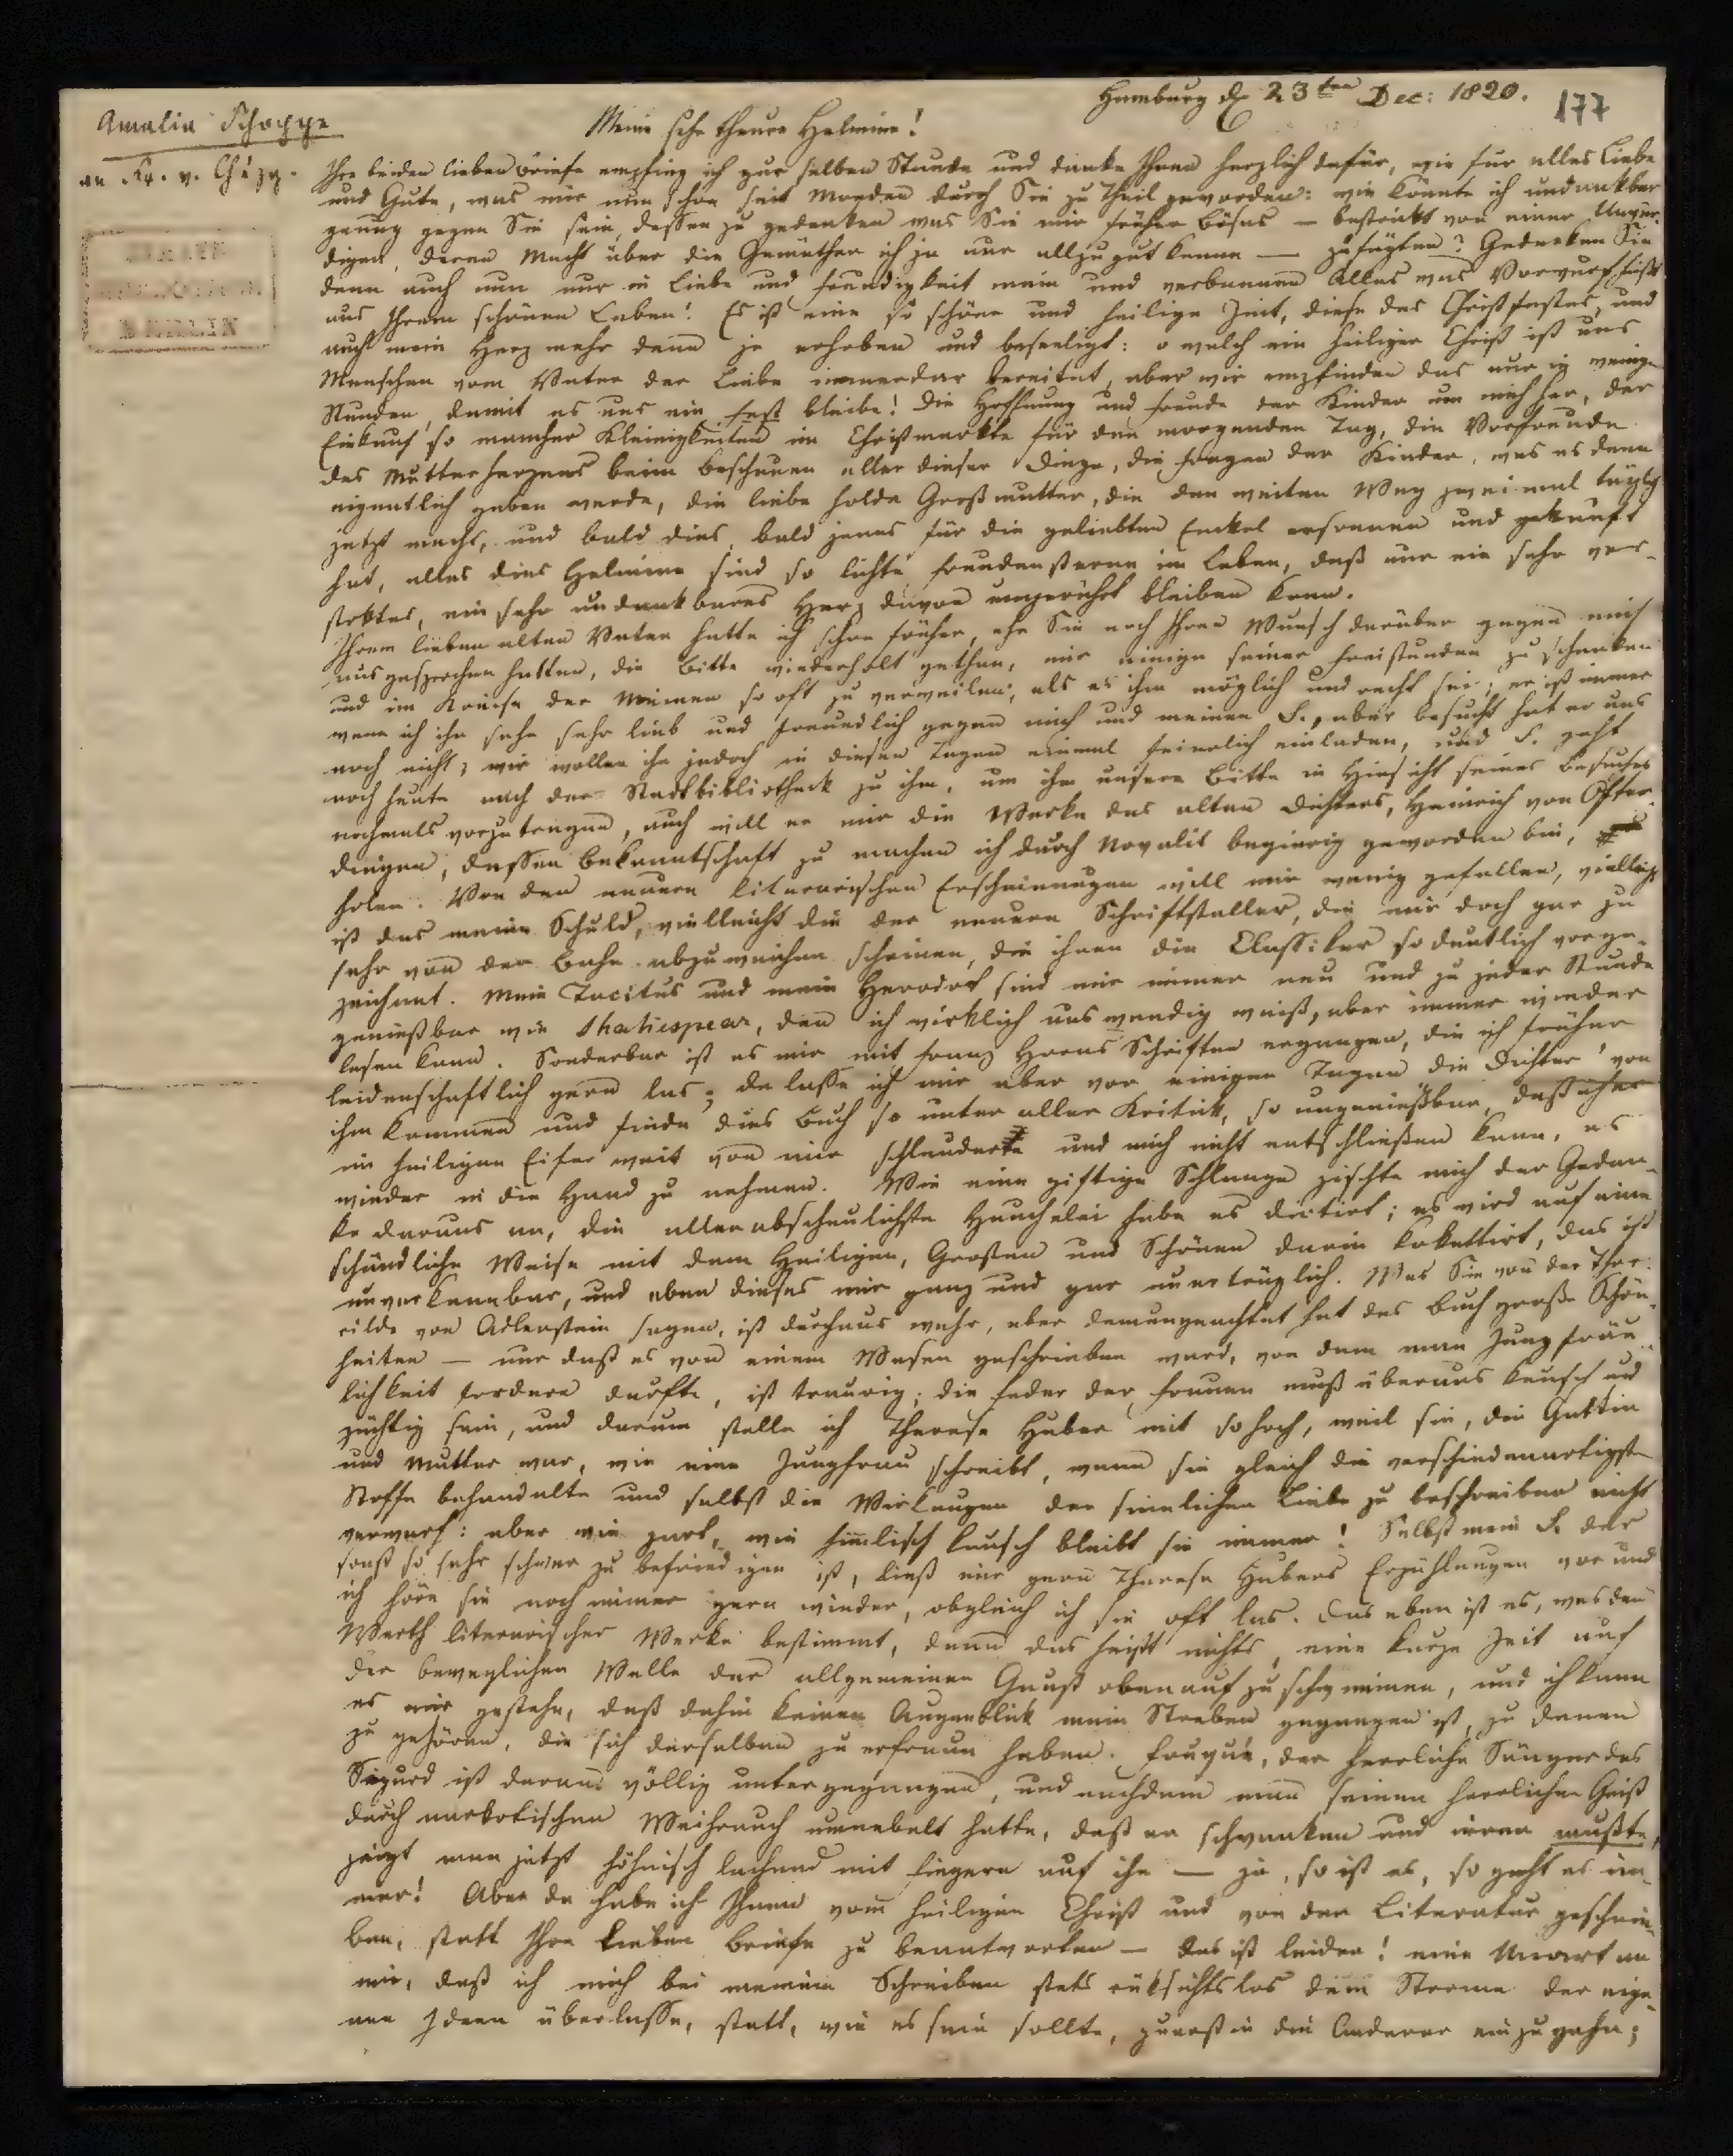 Hamburg d. 23ten Dec: 1820.
177
Amalia Schoppe
an Fr. v. Chézy.
Meine sehr theure Helmine!
Ihre beiden lieben Briefe empfing ich zur selben Stunde und danke Ihnen herzlich dafür, wie für alles Liebe
und Gute, was mir nun schon seit Monden durch Sie zu Theil geworden: wie könnte ich undankbar
genug gegen Sie sein, dessen zu gedenken was Sie mir früher böses — bestrikt von einer Unwür-
digen, deren Macht über die Gemüther ich ja nur allzugut kenne — zufügten? Gedenken Sie
denn auch nun nur in Liebe und Freudigkeit mein und verbannen Alles was Vorwurf heißt
aus Ihrem schönen Leben! Es ist eine so schöne und heilige Zeit, diese des Christfestes, und
auch mein Herz mehr denn je erhoben und beseeligt: o welch ein heiliger Christ ist uns
Menschen vom Vater der Liebe immerdar bereitet, aber wir empfinden das nur in wenigen
Stunden, damit es uns ein Fest bleibe! Die Hoffnung und Freude der Kinder um mich her, der
Einkauf so mancher Kleinigkeiten im Christmarkte für den morgenden Tag, die Vorfreude
des Mutterherzens beim beschauen aller dieser Dinge, die Fragen der Kinder, was es denn
eigentlich geben werde, die liebe holde Großmutter, die den weiten Weg zweimal täglich
jetzt macht, und bald dies, bald jenes für die geliebten Enkel ersonnen und gekauft
hat, alles dies Helmine sind so lichte Freudensterne im Leben, daß nur ein sehr ver-
stoktes, ein sehr undankbares Herz davon ungerührt bleiben kann.
Ihrem lieben alten Vater hatte ich schon früher, ehe Sie noch Ihren Wunsch darüber gegen mich
ausgesprochen hatten, die Bitte wiederholt gethan, mir einige seiner Freistunden zu schenken
und im Kreise der Meinen so oft zu verweilen, als es ihm möglich und recht sei; er ist immer
wenn ich ihn sehe sehr lieb und freundlich gegen mich und meinen S., aber besucht hat er uns
noch nicht; wir wollen ihn jedoch in diesen Tagen einmal feierlich einladen, und S. geht
noch heute nach der Stadtbibliothek zu ihm, um ihm unsere Bitte in Hinsicht seines Besuches
nochmals vorzutragen, auch will er mir die Werke des alten Dichters, Heinrich von Ofter-
dingen, dessen Bekanntschaft zu machen ich durch Novalis begierig geworden bin,
holen. Von den neuern literarischen Erscheinungen will mir wenig gefallen, vielleicht
ist das meine Schuld, vielleicht die der neuern Schriftsteller, die mir doch gar zu
sehr von der Bahn abzuweichen scheinen, die ihnen die Classiker so deutlich vorge-
zeichnet. Mein Tacitus und mein Herodot sind mir immer neu und zu jeder Stunde
genießbar wie Shakespear, den ich wirklich auswendig weiß, aber immer wieder
lesen kann. Sonderbar ist es mir mit Franz Horns Schriften ergangen, die ich früher
leidenschaftlich gern las; da lasse ich mir aber vor einigen Tagen die Dichter von
ihm kommen und finde dies Buch so unter aller Kritik, so ungenießbar, daß
im heiligen Eifer weit von mir schleuderte und mich nicht entschließen kann, es
wieder in die Hand zu nehmen. Wie eine giftige Schlange zischte mich der Gedan-
ke daraus an, die allerabscheulichste Heuchelei habe es dictirt; es wird auf eine
schändliche Weise mit dem Heiligen, Großen und Schönen darin kokettirt, das ist
unverkennbar, und eben dieses mir ganz und gar unerträglich. Was Sie von der Thor-
rilde von Adlerstein sagen, ist durchaus wahr, aber demungeachtet hat das Buch große Schön-
heiten — nur daß es von einem Wesen geschrieben ward, von dem man Jungfräu-
lichkeit fordern durfte, ist traurig; die Feder der Frauen muß überaus keusch und
züchtig sein, und darum stelle ich Therese Huber mit so hoch, weil sie, die Gattin
und Mutter war, wie eine Jungfrau schreibt, wenn sie gleich die verschiedenartigsten
Stoffe behandelte und selbst die Wirkungen der sinnlichen Liebe zu beschreiben nicht
verwarf: aber wie zart, wie himlisch keusch bleibt sie immer! Selbst mein S. der
sonst so sehr schwer zu befriedigen ist, ließt mir gern Therese Hubers Erzählungen vor und
ich höre sie noch immer gern wieder, obgleich ich sie oft las. Das eben ist es, was den
Werth literarischer Werke bestimmt, denn das heißt nichts, eine kurze Zeit auf
der beweglichen Welle der allgemeinen Gunst obenauf zu schwimmen, und ich kann
es mir gestehn, daß dahin keinen Augenblick mein Streben gegangen ist, zu denen
zu gehören, die sich derselben zu erfreun haben. Fouqué, der herrliche Sänger des
Sigurd ist daran völlig untergegangen, und nachdem man seinen herrlichen Geist
durch narkotischen Weihrauch umnebelt hatte, daß er schwanken und irren mußte,
zeigt man jetzt höhnisch lachend mit Fingern auf ihn — ja, so ist es, so geht es im-
mer! Aber da habe ich Ihnen vom heiligen Christ und von der Literatur geschrie-
ben, statt Ihre lieben Briefe zu beantworten — das ist leider! eine Unart an
mir, daß ich mich bei meinem Schreiben stets rüksichtslos dem Strome der eige-
nen Ideen überlasse, statt, wie es sein sollte, zuerst in die Anderer einzugehn;